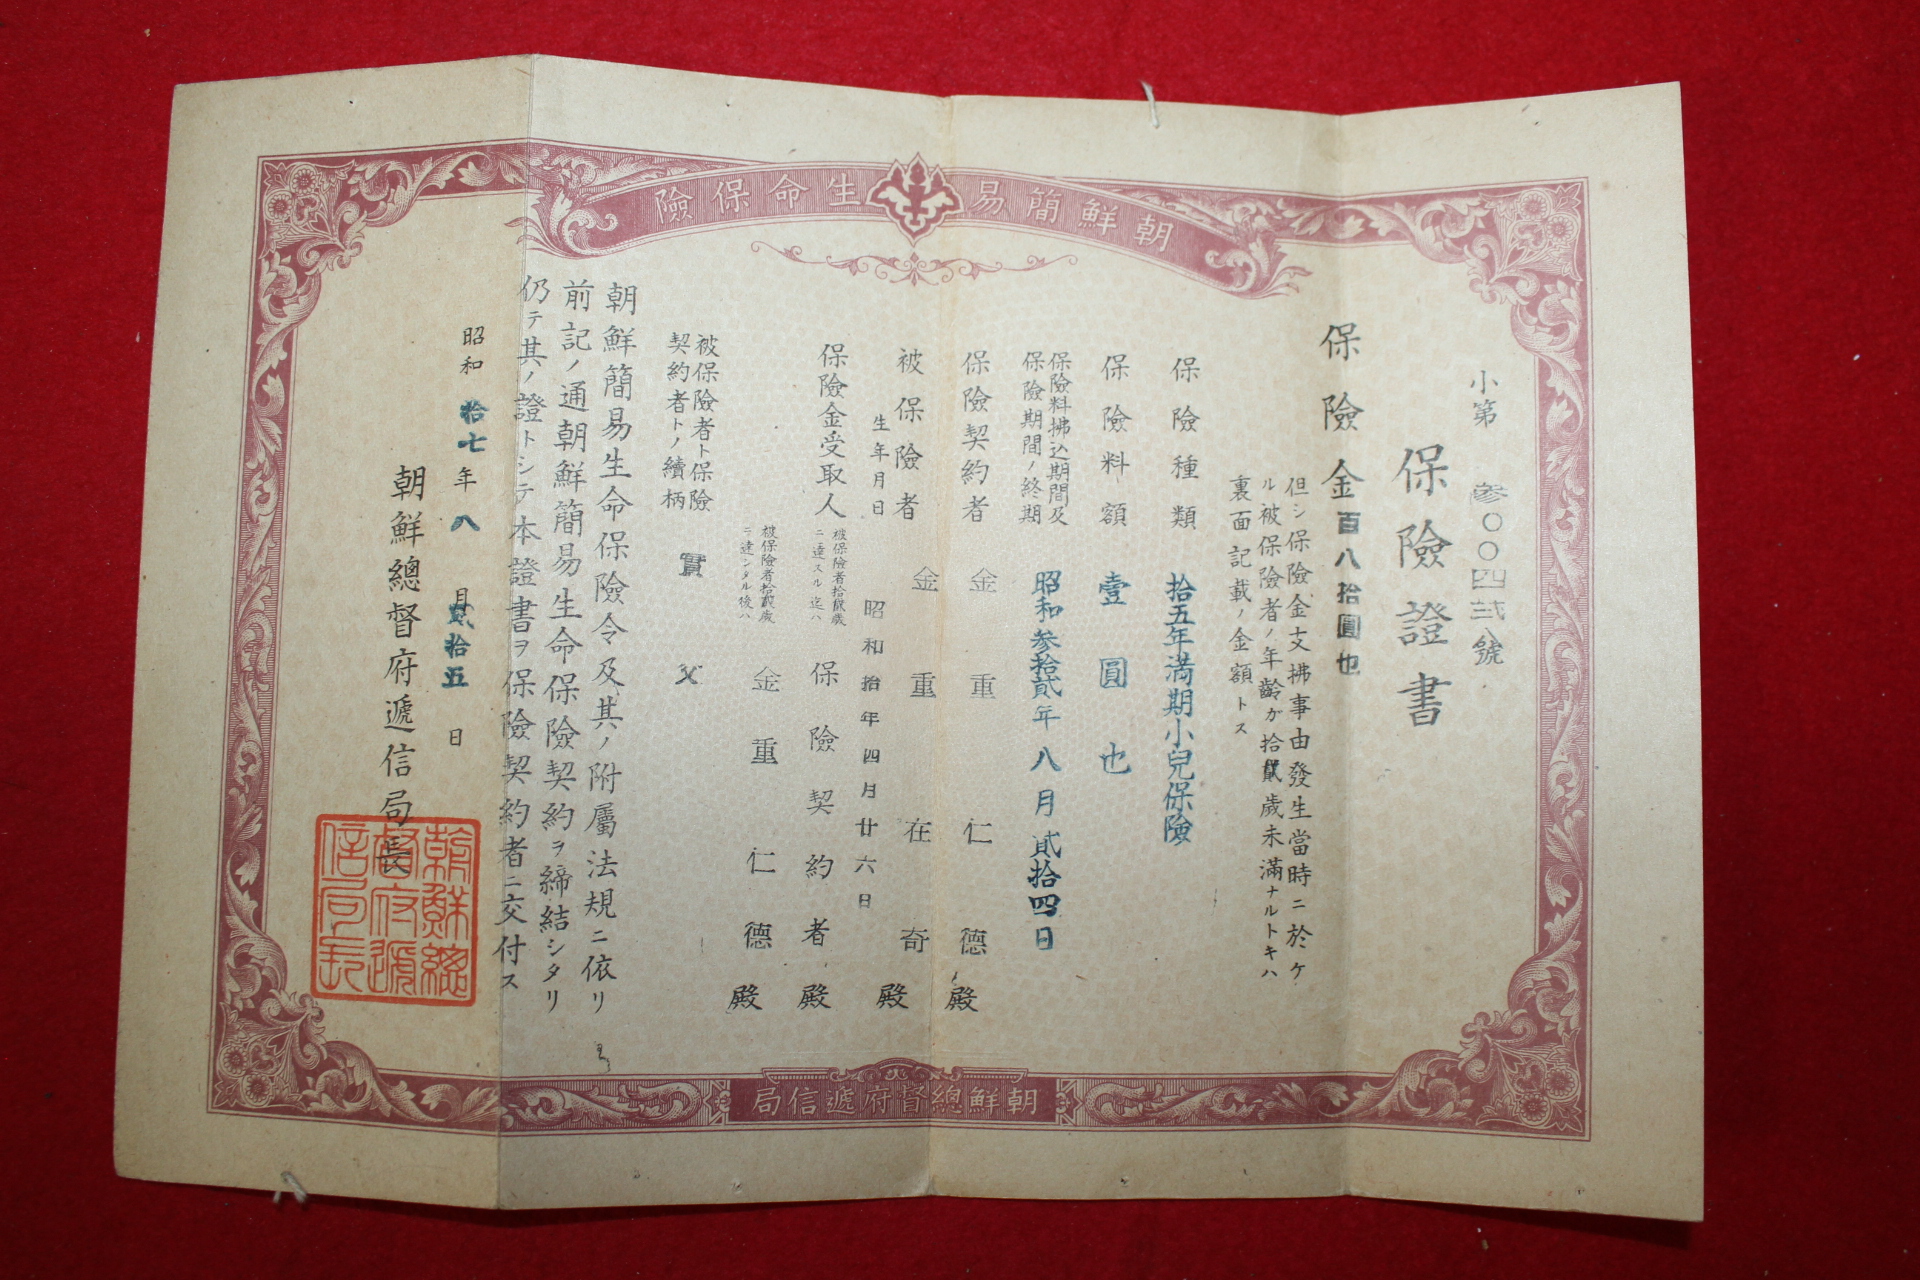 朝鮮簡易生命保險
小第參〇〇四弍八號
保險證書
保險金百八拾圓也
但シ保險金支拂事由發生當時ニ於ケ
ル被保險者ノ年齡ガ拾貳歲未滿ナルトキハ
裏面記載ノ金額トス
保險種類 拾五年滿期小兒保險
保險料額 壹圓也
保險料拂込期間及
保險期間ノ終期 昭和參拾貳年八月貳拾四日
保險契約者 金重仁德殿
被保險者 金重在奇殿
生年月日 昭和拾年四月廿六日
保險金受取人
被保險者拾貳歲
ニ達スル迄ハ 保險契約者殿
被保險者拾貳歲
ニ達シタル後ハ 金重仁德殿
被保險者ト保險
契約者トノ續柄 實父
朝鮮簡易生命保險令及其ノ附屬法規ニ依リ
前記ノ通朝鮮簡易生命保險契約ヲ締結シタリ
仍テ其ノ證トシテ本證書ヲ保險契約者ニ交付ス
昭和拾七年八月貳拾五日
朝鮮總督府遞信局長
朝鮮總督府遞信局長
朝鮮總督府遞信局